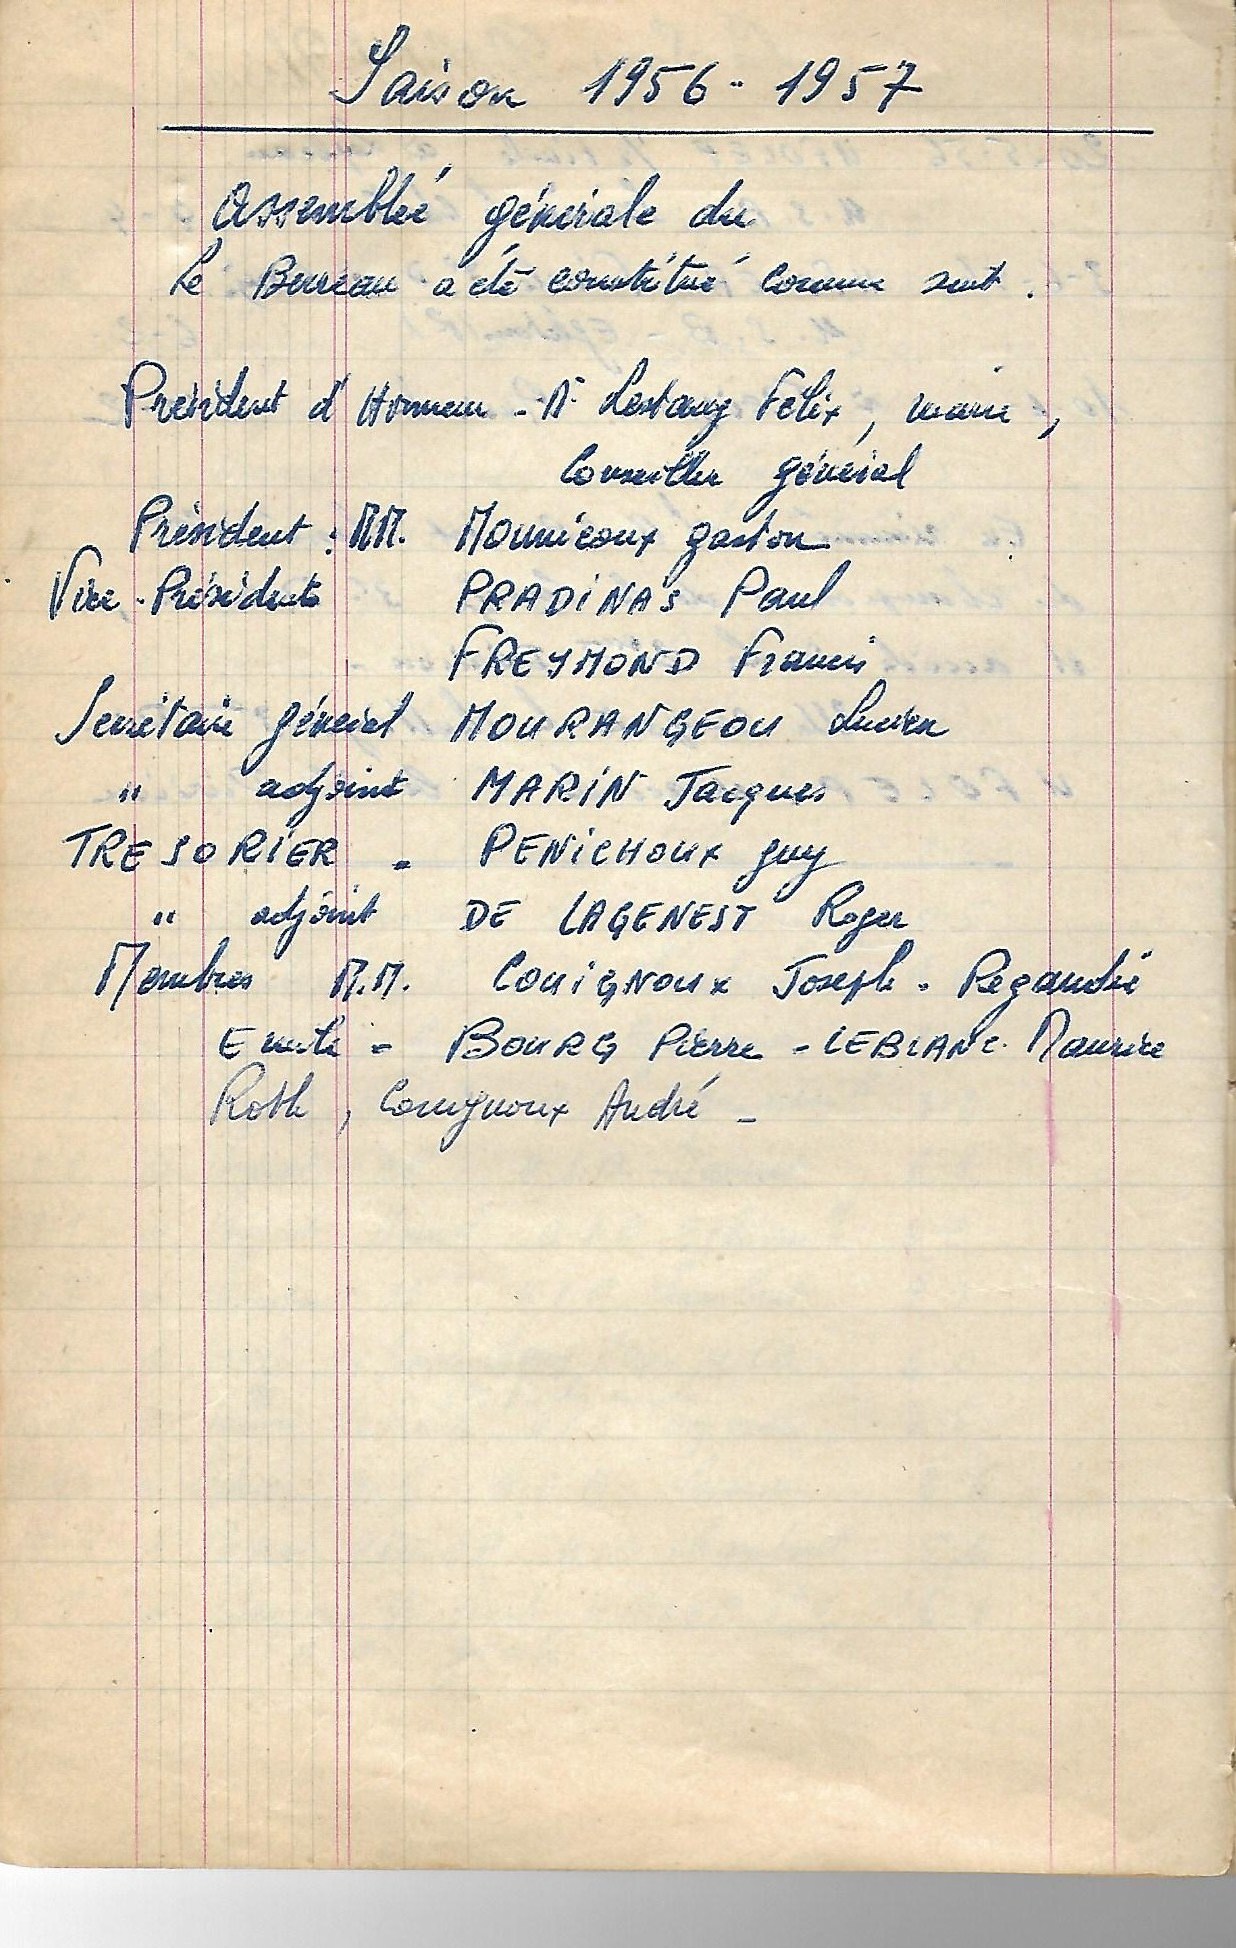 Saison 1956 - 1957
Assemblée générale du
Le Bureau a été constitué comme suit.
Président d'Honneur - Mr Lestang Félix, maire,
Conseiller général
Président : MM. Mourricoux gaston
Vice-Présidents PRADINAS Paul
FREYMOND Francis
Secrétaire général MOURANGEOU Lucien
" adjoint MARIN Jacques
TRESORIER - PENICHOUX guy
" adjoint DE LAGENEST Roger
Membres M.M. COUIGNOUX Joseph - Regaudie
Emile - BOURG Pierre - LEBLANC Maurice
Roth, Couignoux André -